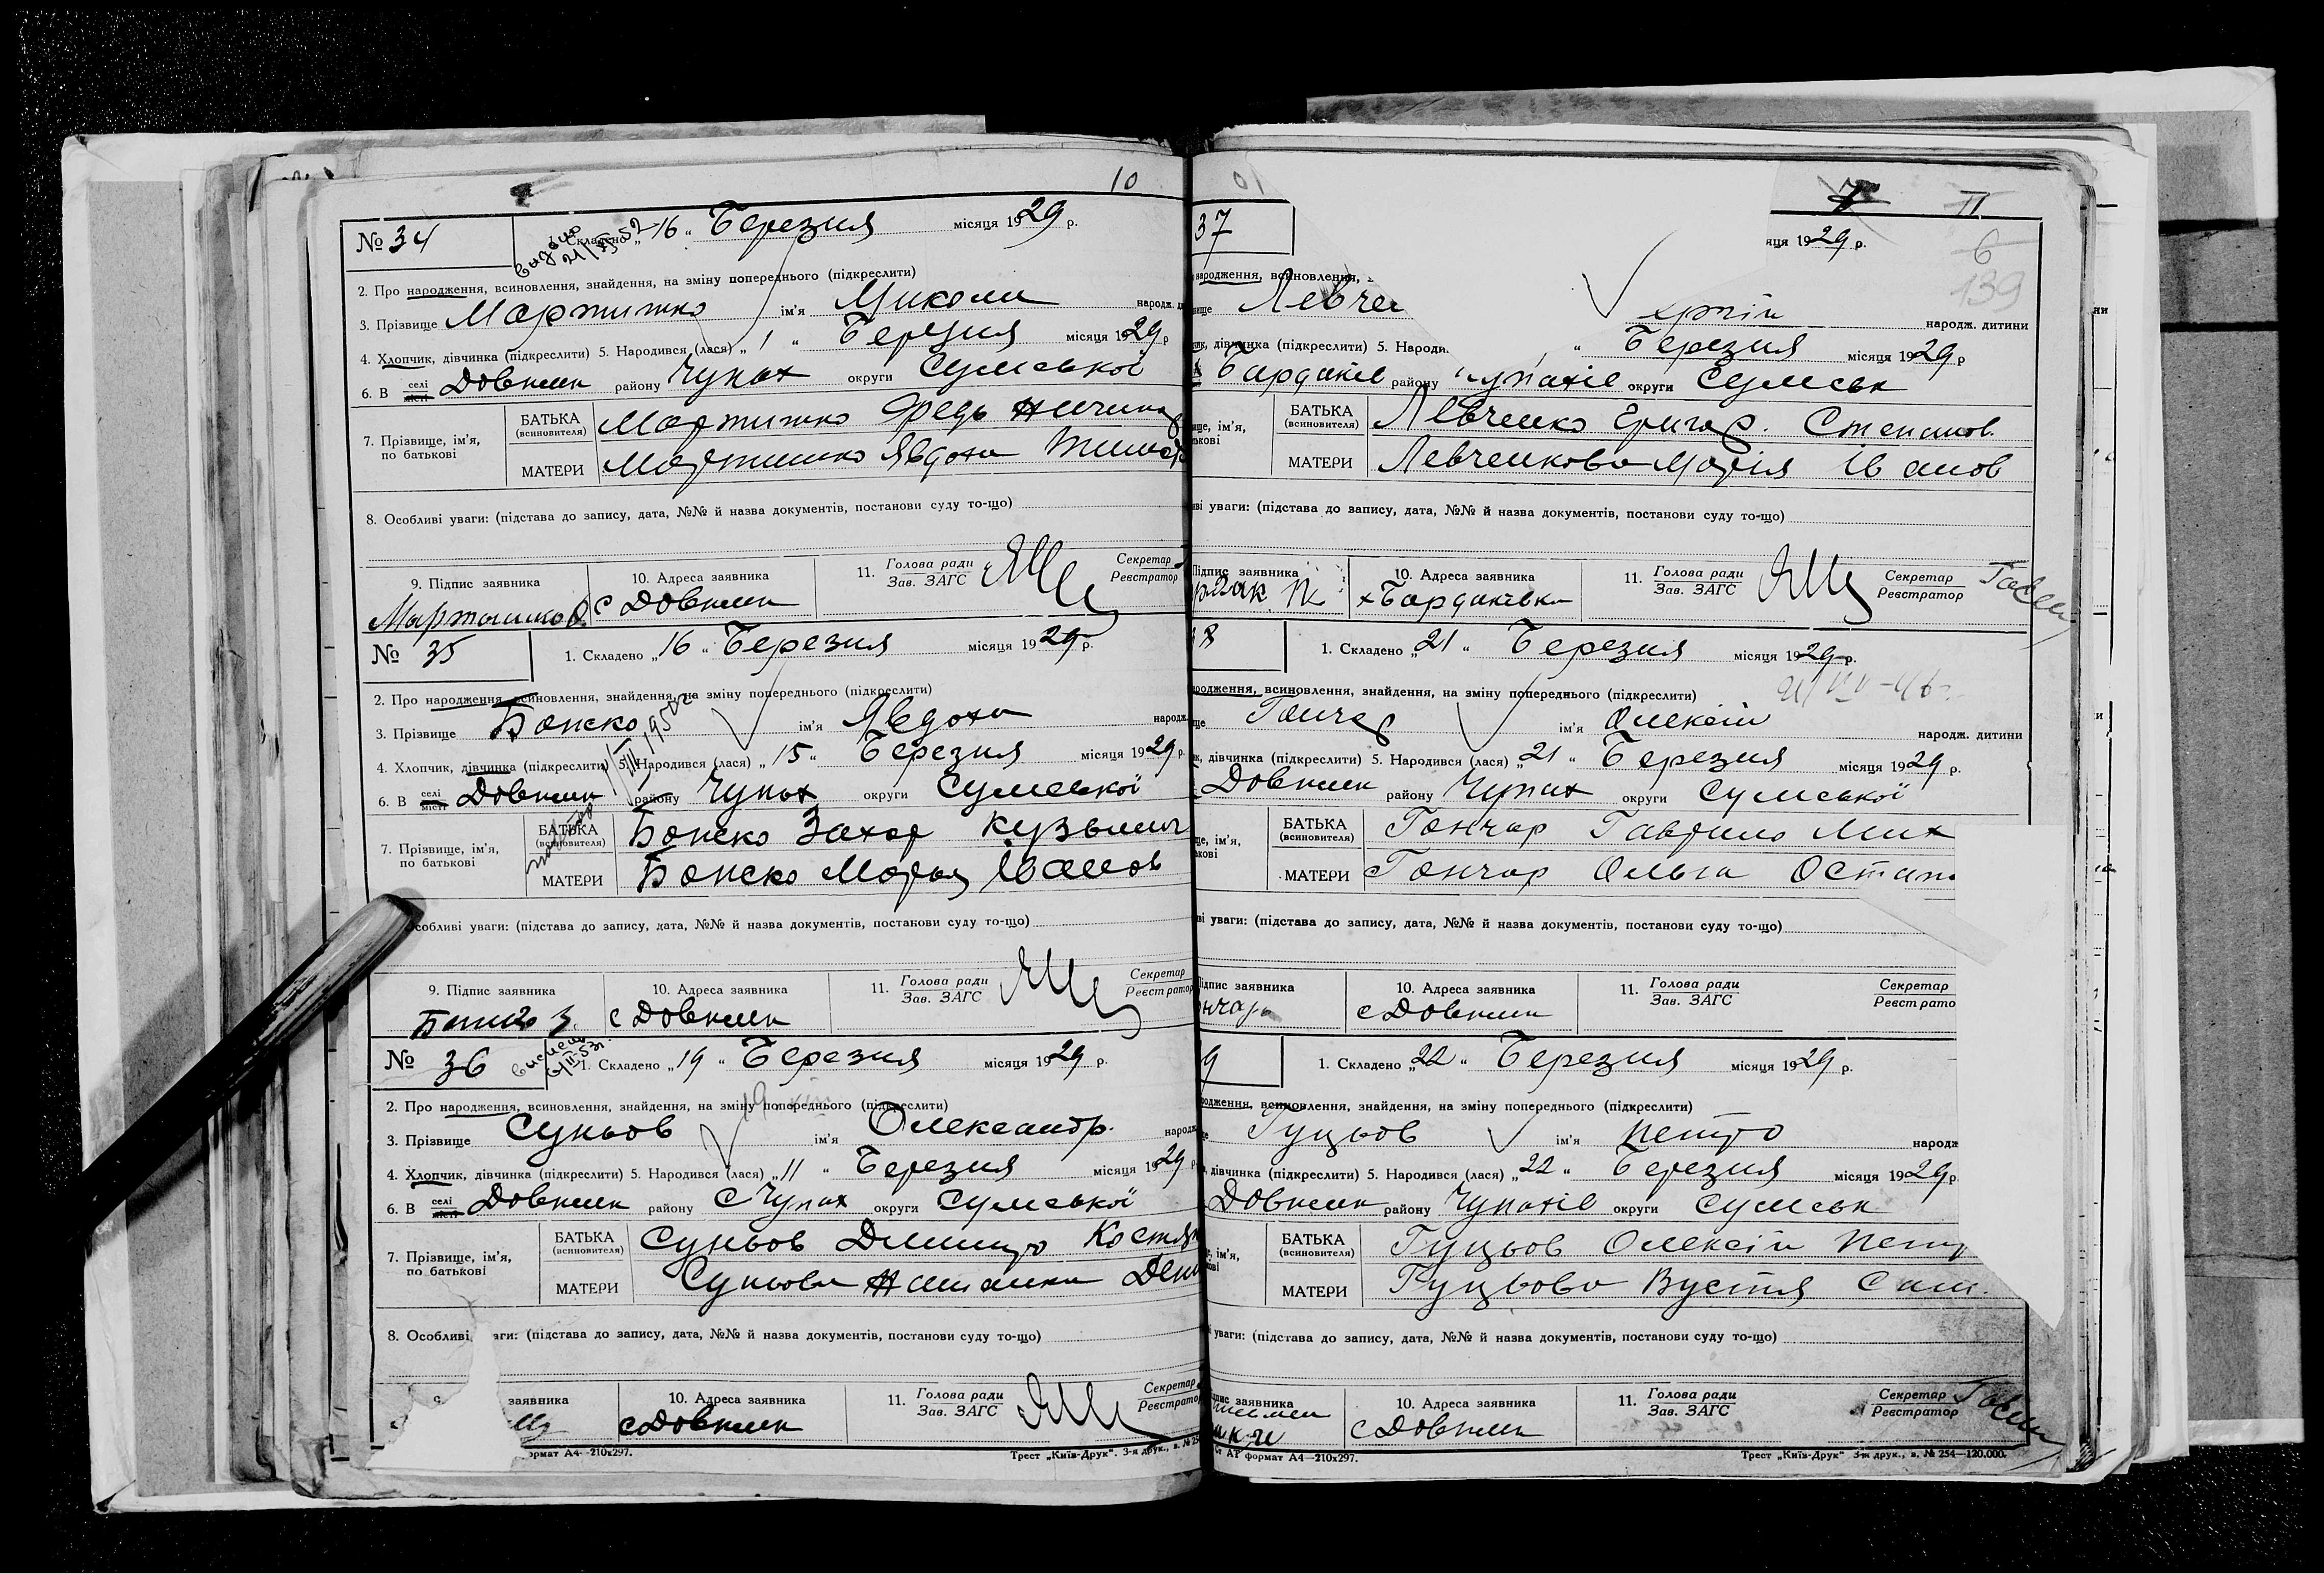 10
№ 34
1. Складено „16“ Березня місяця 1929 р.
2. Про народження, всиновлення, знайдення, на зміну попереднього (підкреслити)
3. Прізвище Мартишко ім'я Микола народж.
4. Хлопчик, дівчинка (підкреслити) 5. Народився (лася) „1“ Березня місяця 1929 р
6. В селі місті Довжик району Чупах округи Сумської
7. Прізвище, ім'я, по батькові
БАТЬКА (всиновителя) Мартишко Федь
МАТЕРИ Мартишко Явдоха
8. Особливі уваги: (підстава до запису, дата, №№ й назва документів, постанови суду то-що)
9. Підпис заявника
10. Адреса заявника
11. Голова ради Зав. ЗАГС
Секретар Реєстратор
с Довжик
№ 35
1. Складено „16“ Березня місяця 1929 р.
2. Про народження, всиновлення, знайдення, на зміну попереднього (підкреслити)
3. Прізвище ім'я Явдоха народж.
4. Хлопчик, дівчинка (підкреслити) 5. Народився (лася) „15“ Березня місяця 1929 р.
6. В селі місті Довжик району Чупах округи Сумської
7. Прізвище, ім'я, по батькові
БАТЬКА (всиновителя) Захар Кузьмич
МАТЕРИ Марія Іванов
собливі уваги: (підстава до запису, дата, №№ й назва документів, постанови суду то-що)
9. Підпис заявника
10. Адреса заявника
11. Голова ради Зав. ЗАГС
Секретар Реєстратор
с Довжик
№ 36
1. Складено „19“ Березня місяця 1929 р.
2. Про народження, всиновлення, знайдення, на зміну попереднього (підкреслити)
3. Прізвище Суньов ім'я Олександр. народж
4. Хлопчик, дівчинка (підкреслити) 5. Народився (лася) „11“ Березня місяця 1929 р.
6. В селі місті Довжик району Чупах округи Сумської
7. Прізвище, ім'я, по батькові
БАТЬКА (всиновителя) Суньов Дмитро Костян
МАТЕРИ Суньова
8. Особливі аги: (підстава до запису, дата, №№ й назва документів, постанови суду то-що)
заявника
10. Адреса заявника
11. Голова ради Зав. ЗАГС
Секретар Реєстратор
с Довжик
ормат А4—210х297.
Трест „Київ-Друк“. 3-я друк., з. № 25
7
11
6
139
37
яця 1929 р.
народження, всиновлення,
Левче
народж. дитини
дівчинка (підкреслити) 5. Народи. Березня місяця 1929 р
Бардаків району округи Сумськ
БАТЬКА (всиновителя) Левченко Григор. Степанов.
МАТЕРИ Левченкова Марія Іванов
уваги: (підстава до запису, дата, №№ й назва документів, постанови суду то-що)
Підпис заявника
10. Адреса заявника
11. Голова ради Зав. ЗАГС
Секретар Реєстратор
х Бардаківка
8
1. Складено „21“ Березня місяця 1929 р.
народження, всиновлення, знайдення, на зміну попереднього (підкреслити)
Гончар ім'я Олексій народж. дитини
дівчинка (підкреслити) 5. Народився (лася) „21“ Березня місяця 1929 р.
Довжик району Чупах округи Сумської
БАТЬКА (всиновителя) Гончар Гаврило Мих
МАТЕРИ Гончар Ольга Остап
уваги: (підстава до запису, дата, №№ й назва документів, постанови суду то-що)
Підпис заявника
10. Адреса заявника
11. Голова ради Зав. ЗАГС
Секретар Реєстрато
нчарь
с Довжик
9
1. Складено „22“ Березня місяця 1929 р.
одження, всиновлення, знайдення, на зміну попереднього (підкреслити)
Гуцьов ім'я Петро народж
дівчинка (підкреслити) 5. Народився (лася) „22“ Березня місяця 1929 р.
Довжик району Чупахів округи Сумськ
БАТЬКА (всиновителя) Гуцьов Олексій Петр
МАТЕРИ Гуцьова Вустя
уваги: (підстава до запису, дата, №№ й назва документів, постанови суду то-що)
заявника
10. Адреса заявника
11. Голова ради Зав. ЗАГС
Секретар Реєстратор
с Довжик
формат А4—210х297.
Трест „Київ-Друк“ 3-я друк., з. № 254—120.000.